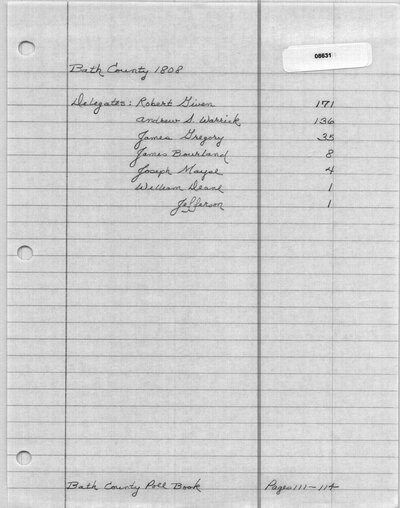 08631
Bath County 1808
Delegates: Robert Given 171
Andrew S. Warrick 136
James Gregory 35
James Bourland 8
Joseph Mayse 4
William Deane 1
Jefferson 1
Bath County Poll Book Pages 111-114